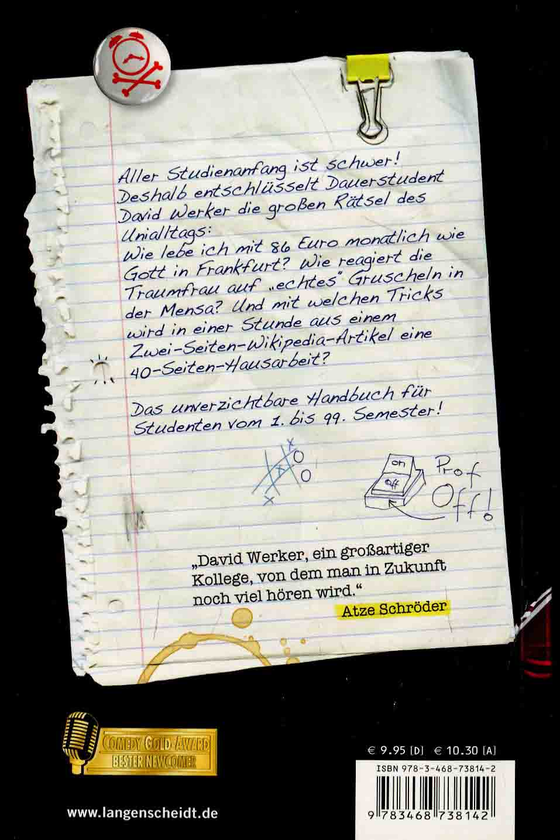 Aller Studienanfang ist schwer!
Deshalb entschlüsselt Dauerstudent
David Werker die großen Rätsel des
Unialltags:
Wie lebe ich mit 86 Euro monatlich wie
Gott in Frankfurt? Wie reagiert die
Traumfrau auf „echtes" Gruscheln in
der Mensa? Und mit welchen Tricks
wird in einer Stunde aus einem
Zwei-Seiten-Wikipedia-Artikel eine
40-Seiten-Hausarbeit?
Das unverzichtbare Handbuch für
Studenten vom 1. bis 99. Semester!
on
off
Prof
Off!
„David Werker, ein großartiger
Kollege, von dem man in Zukunft
noch viel hören wird.“
Atze Schröder
COMEDY GOLD-AWARD
BESTER NEWCOMER
www.langenscheidt.de
€ 9.95 [D] € 10.30 [A]
ISBN 978-3-468-73814-2
9783468738142